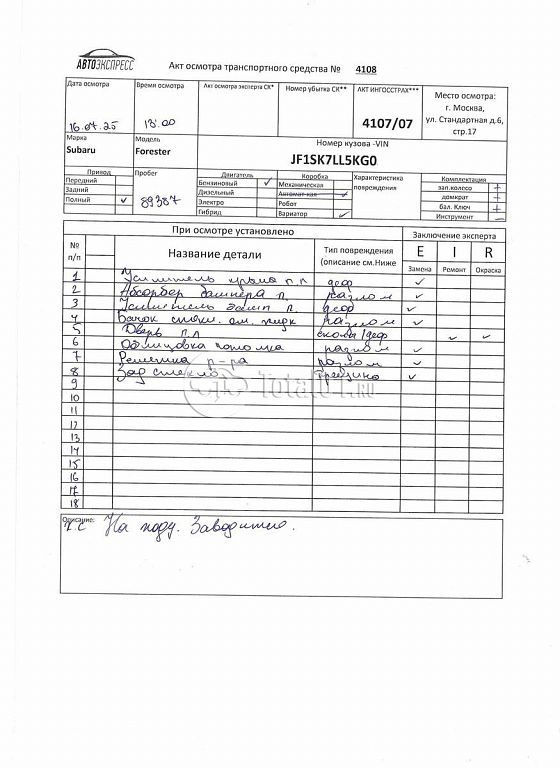 АВТОЭКСПРЕСС
Акт осмотра транспортного средства № 4108
Дата осмотра
16.07.25
Время осмотра
13.00
Акт осмотра эксперта СК*
Номер убытка СК**
АКТ ИНГОССТРАХ***
4107/07
Место осмотра:
г. Москва,
ул. Стандартная д.6,
стр.17
Марка
Subaru
Модель
Forester
Номер кузова -VIN
JF1SK7LL5KG0
Привод
Передний
Задний
Полный ✓
Пробег
89387
Двигатель
Бензиновый ✓
Дизельный
Электро
Гибрид
Коробка
Механическая
Автомат-кая
Робот
Вариатор ✓
Характеристика
повреждения
Комплектация
зап.колесо +
домкрат +
бал. Ключ +
Инструмент –
При осмотре установлено
Заключение эксперта
№
п/п
Название детали
Тип повреждения
(описание см.Ниже
E I R
Замена Ремонт Окраска
1 Усилитель крыла п.п деф ✓
2 Абсорбер бампера п. разлом ✓
3 Усилитель п. деф ✓
4 Бачок ом. жидк разлом ✓
5 Дверь п.п /деф ✓ ✓
6 Облицовка потолка разлом ✓
7 Решетка р-ра разлом ✓
8 Зад стекло трещина ✓
9
10
11
12
13
14
15
16
17
18
Total01.ru
Описание:
ТС На ходу. Заводится.